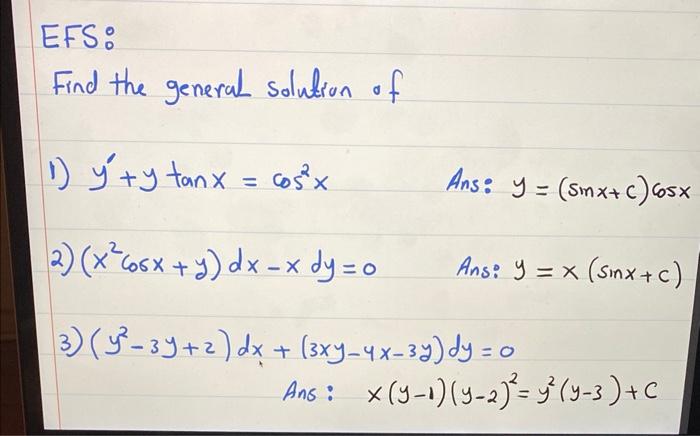 EFS:
Find the general solution of
1) y' + y tanx = cos²x Ans: y = (sinx + c) cosx
2) (x² cosx + y) dx - x dy = 0 Ans: y = x (sinx + c)
3) (y² - 3y + 2) dx + (3xy - 4x - 3y) dy = 0
Ans: x (y-1) (y-2)² = y² (y-3) + C